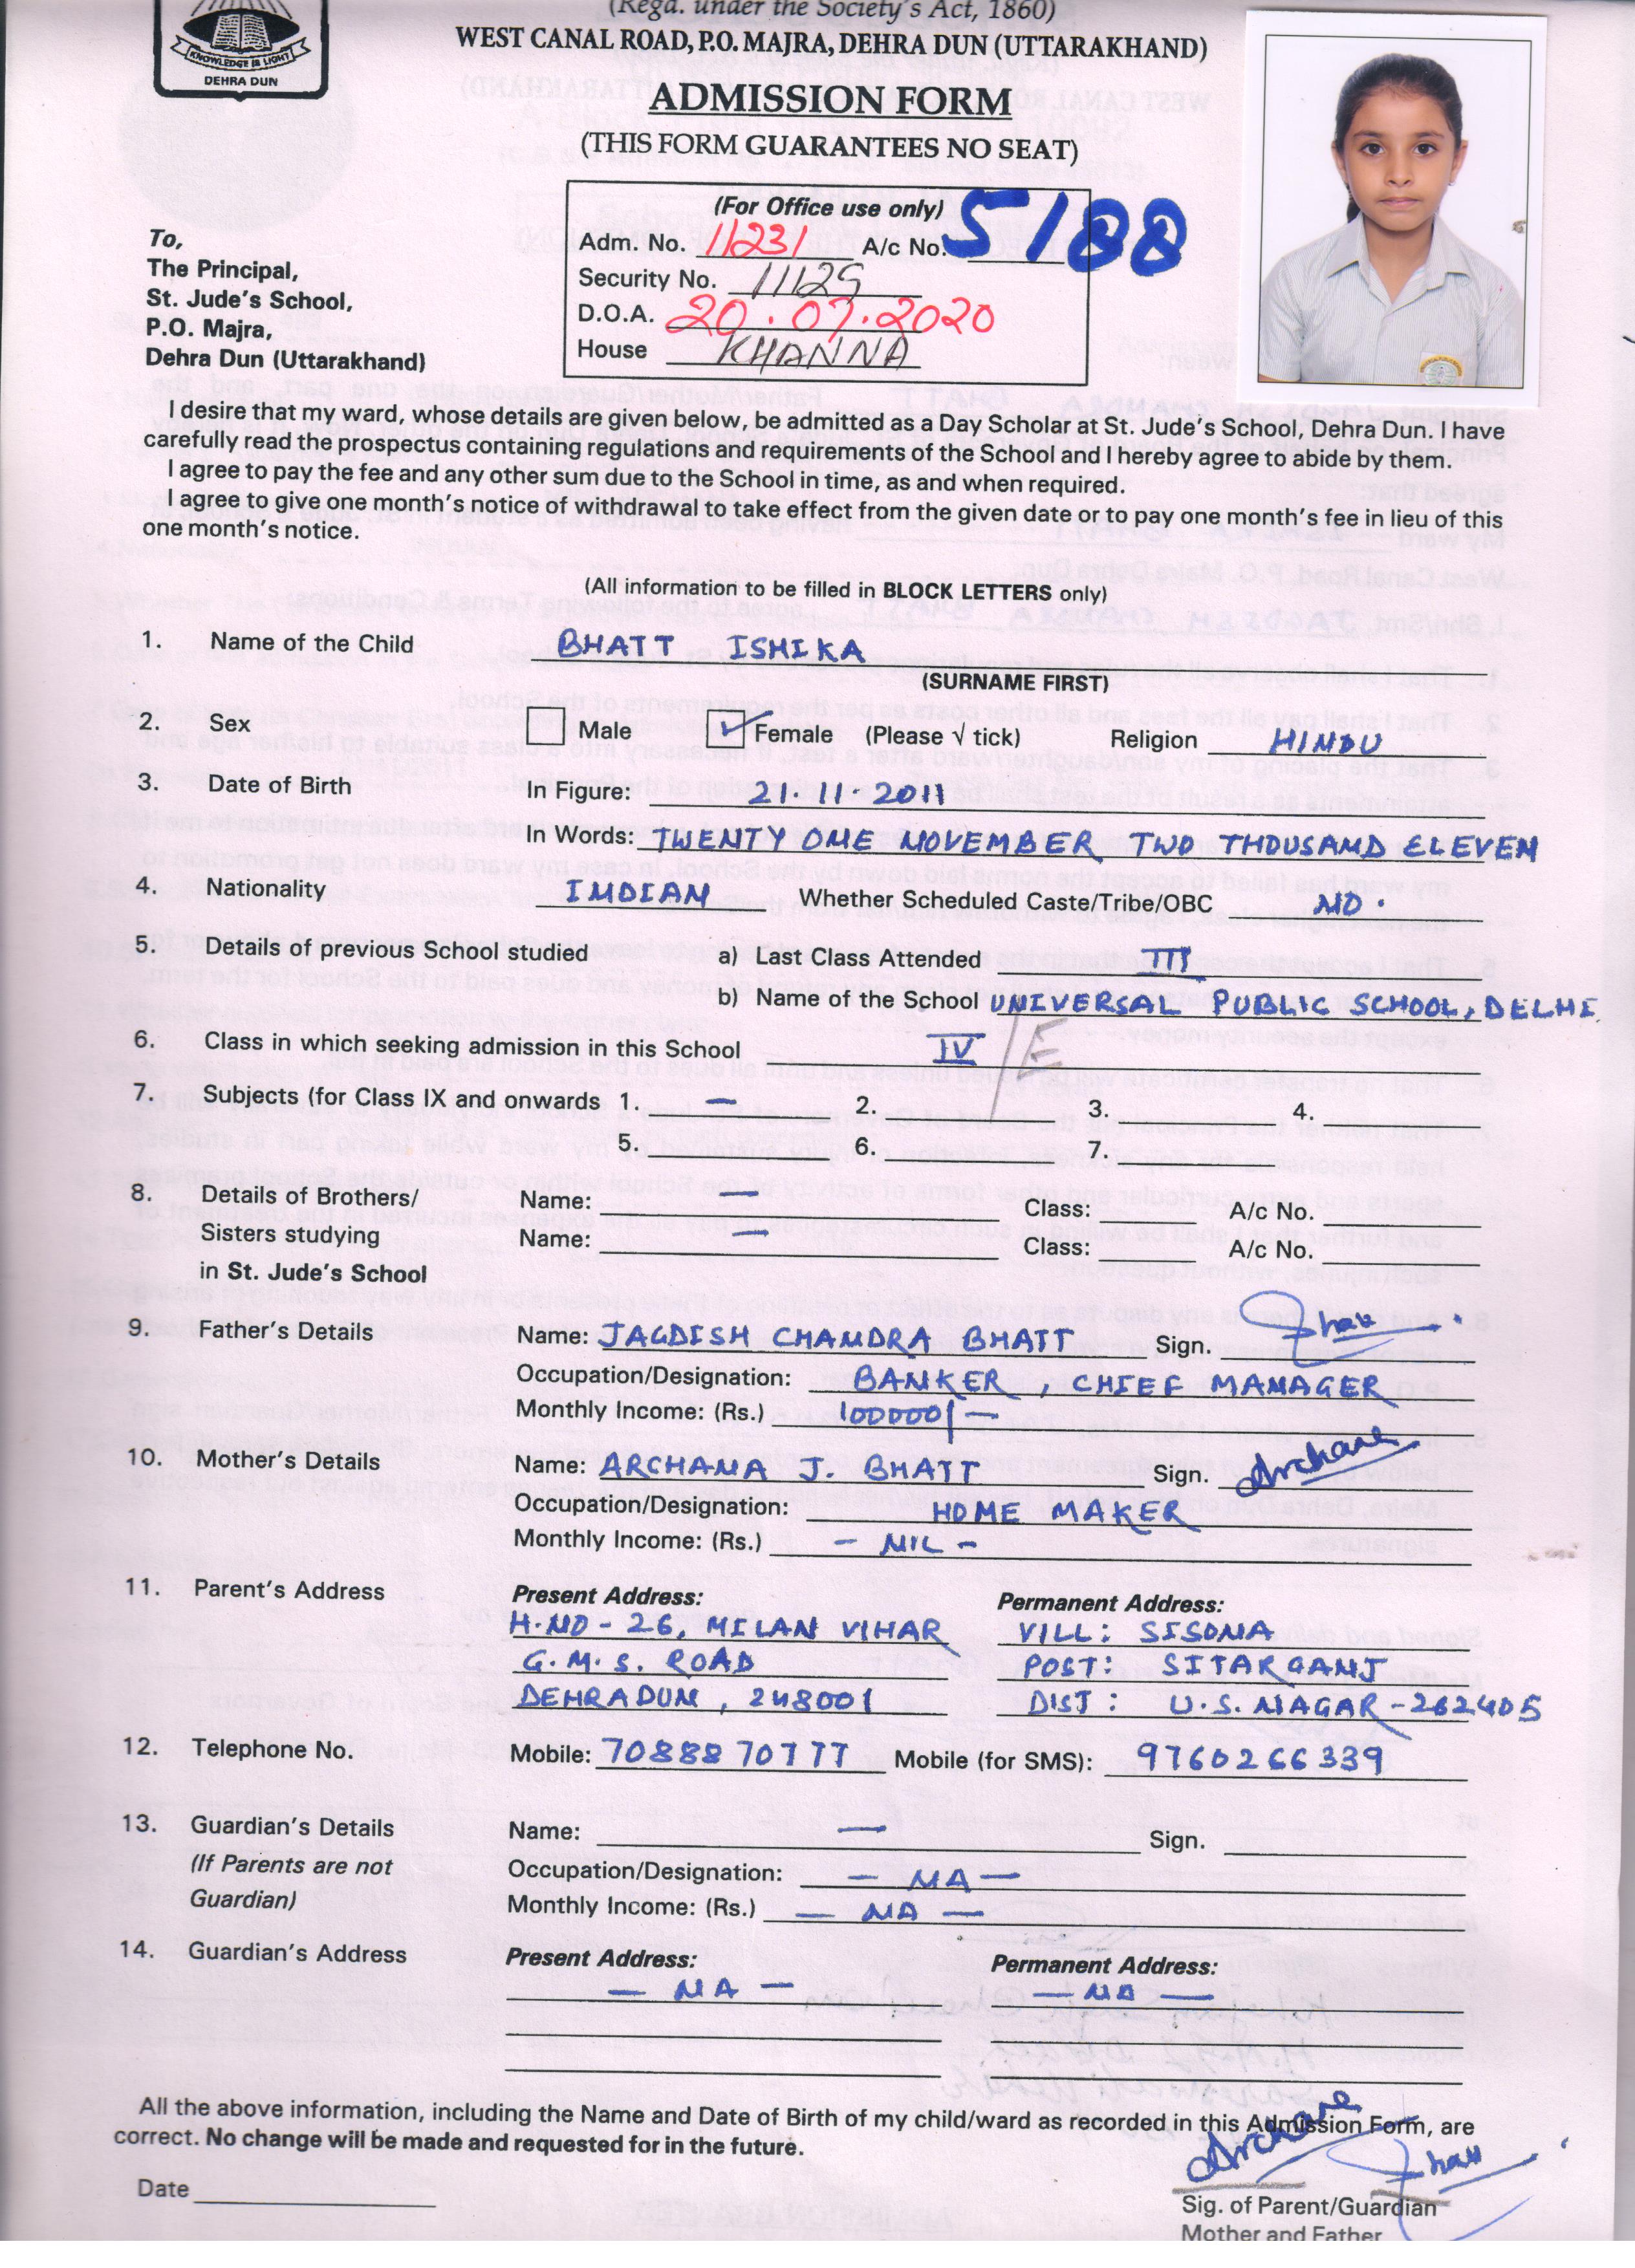 (Regd. under the Society's Act, 1860)
WEST CANAL ROAD, P.O. MAJRA, DEHRA DUN (UTTARAKHAND)
KNOWLEDGE IS LIGHT
DEHRA DUN
ADMISSION FORM
(THIS FORM GUARANTEES NO SEAT)
(For Office use only)
Adm. No. 11231 A/c No. 5188
Security No. 11129
D.O.A. 20.07.2020
House KHANNA
To,
The Principal,
St. Jude's School,
P.O. Majra,
Dehra Dun (Uttarakhand)
I desire that my ward, whose details are given below, be admitted as a Day Scholar at St. Jude's School, Dehra Dun. I have
carefully read the prospectus containing regulations and requirements of the School and I hereby agree to abide by them.
I agree to pay the fee and any other sum due to the School in time, as and when required.
I agree to give one month's notice of withdrawal to take effect from the given date or to pay one month's fee in lieu of this
one month's notice.
(All information to be filled in BLOCK LETTERS only)
1. Name of the Child BHATT ISHIKA
(SURNAME FIRST)
2. Sex Male ✓ Female (Please √ tick) Religion HINDU
3. Date of Birth In Figure: 21.11.2011
In Words: TWENTY ONE NOVEMBER TWO THOUSAND ELEVEN
4. Nationality INDIAN Whether Scheduled Caste/Tribe/OBC NO.
5. Details of previous School studied a) Last Class Attended III
b) Name of the School UNIVERSAL PUBLIC SCHOOL, DELHI
6. Class in which seeking admission in this School IV/E
7. Subjects (for Class IX and onwards 1. — 2. 3. 4.
5. 6. 7.
8. Details of Brothers/ Name: — Class: A/c No.
Sisters studying Name: — Class: A/c No.
in St. Jude's School
9. Father's Details Name: JAGDISH CHANDRA BHATT Sign.
Occupation/Designation: BANKER, CHIEF MANAGER
Monthly Income: (Rs.) 100000/-
10. Mother's Details Name: ARCHANA J. BHATT Sign. Archana
Occupation/Designation: HOME MAKER
Monthly Income: (Rs.) - NIL -
11. Parent's Address Present Address: Permanent Address:
H.NO - 26, MILAN VIHAR VILL: SISONA
G.M.S. ROAD POST: SITARGANJ
DEHRADUN, 248001 DIST: U.S. NAGAR - 262405
12. Telephone No. Mobile: 7088870777 Mobile (for SMS): 9760266339
13. Guardian's Details Name: — Sign.
(If Parents are not Occupation/Designation: — NA —
Guardian) Monthly Income: (Rs.) — NA —
14. Guardian's Address Present Address: Permanent Address:
— NA — — NA —
All the above information, including the Name and Date of Birth of my child/ward as recorded in this Admission Form, are
correct. No change will be made and requested for in the future.
Archana
Date
Sig. of Parent/Guardian
Mother and Father